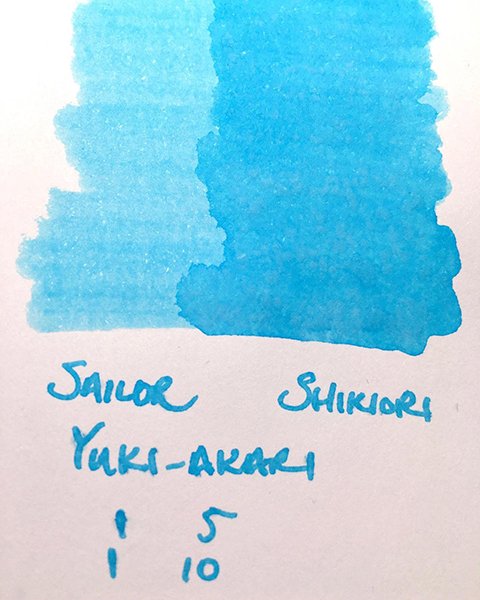 SAILOR SHIKIORI
YUKI-AKARI
1 5
1 10